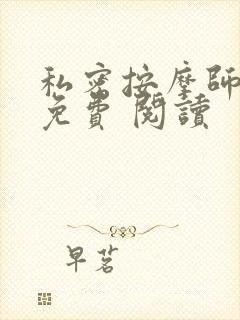 私密按摩師
免費 閱讀
早茗